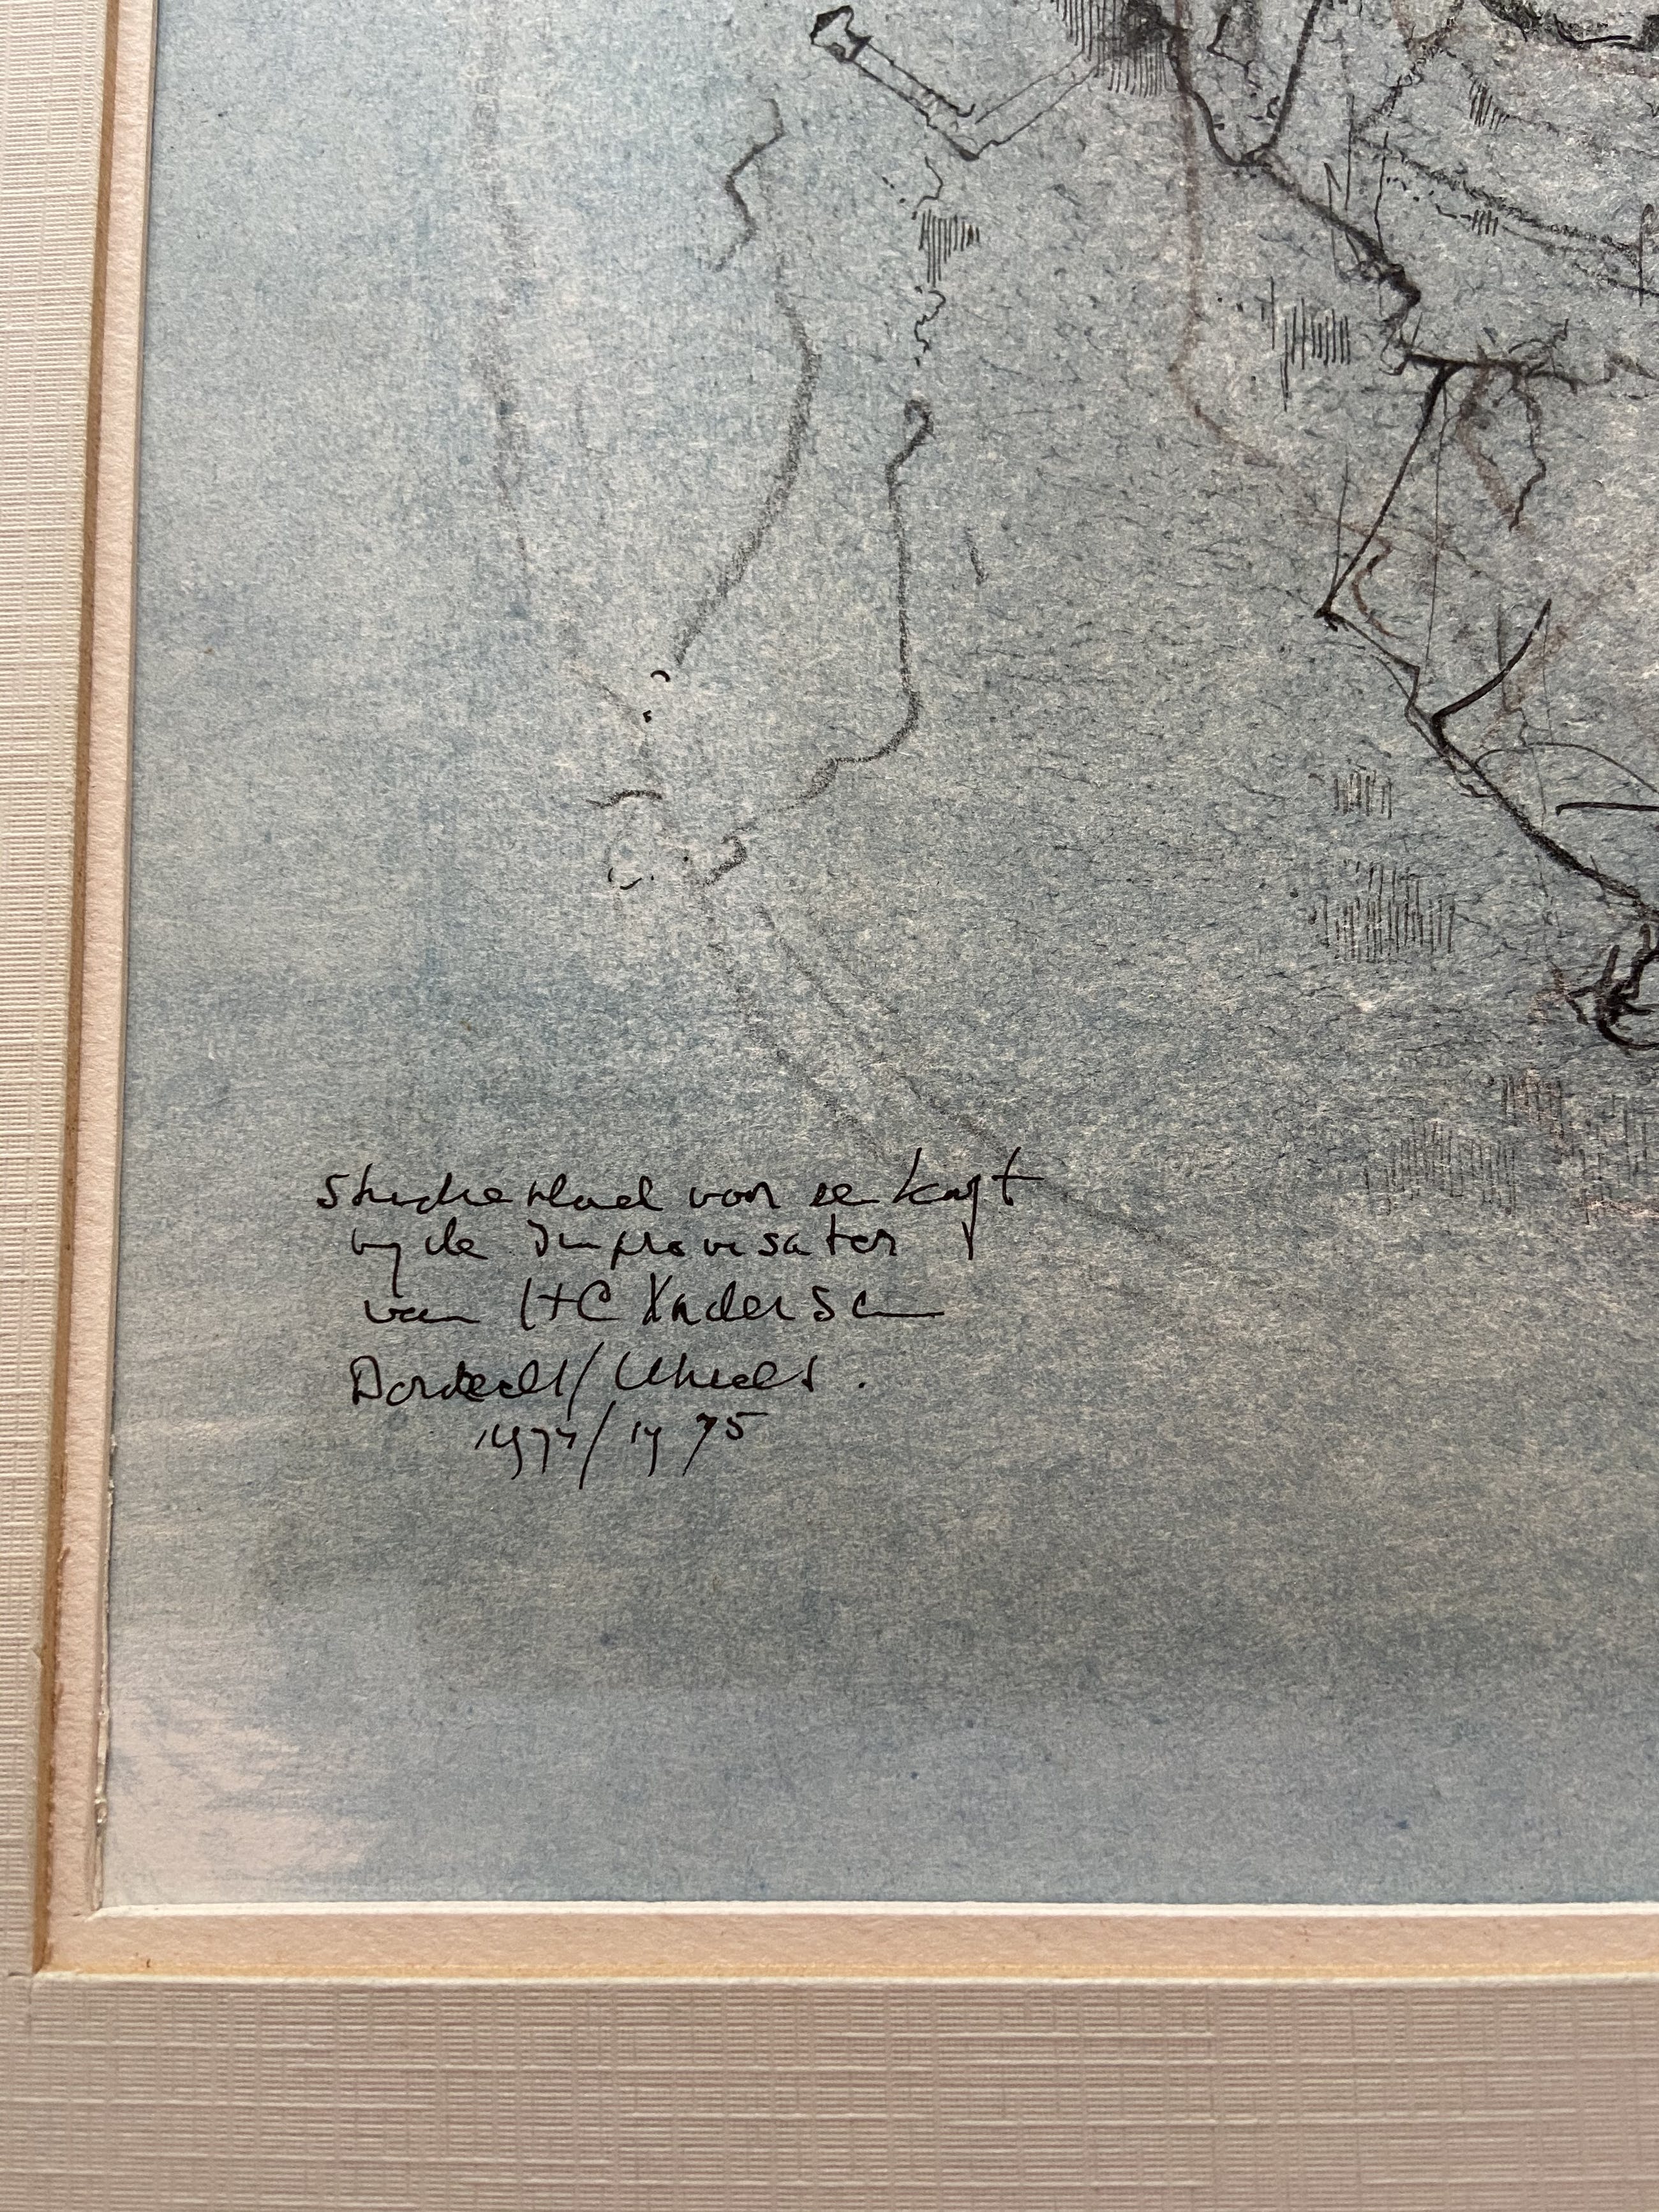 Studieblad voor de
bij de Improvisator
van HC Andersen
Dordrecht/Utrecht.
1974/1975